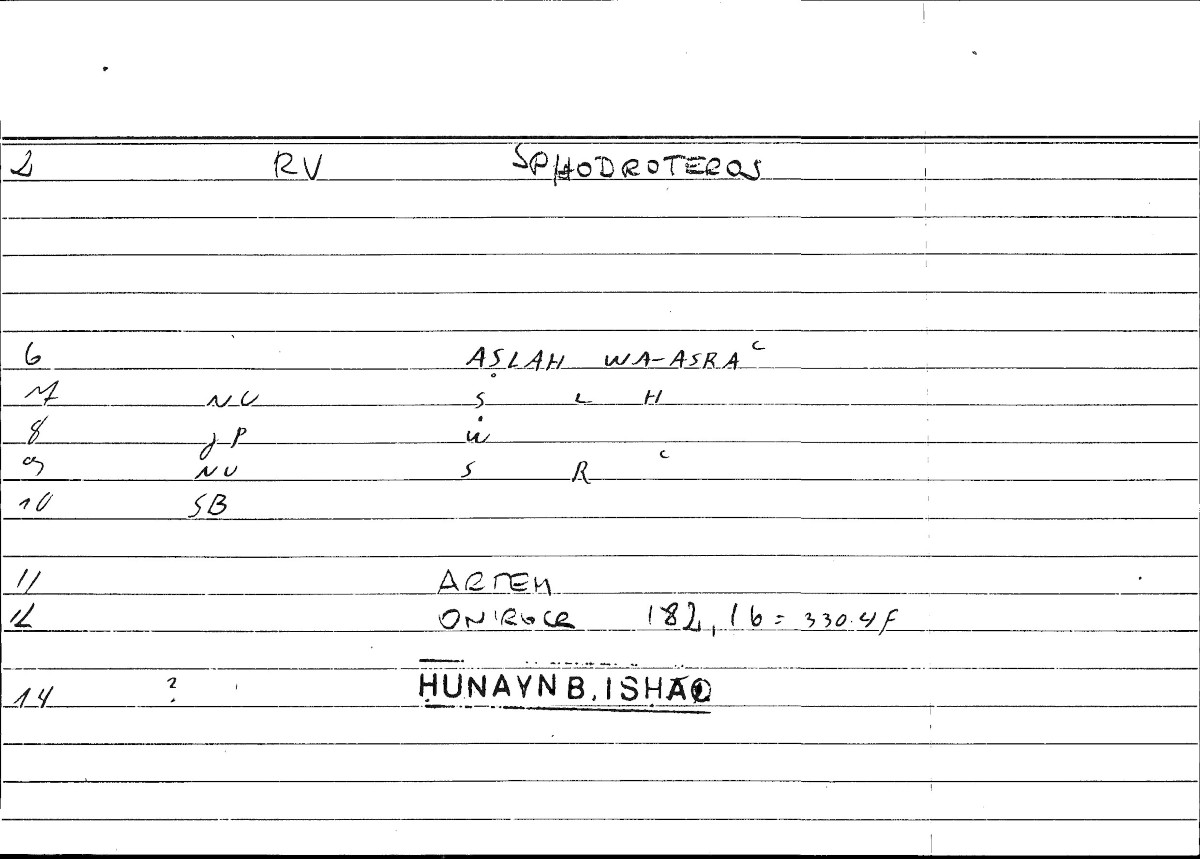 2 RV SPHODROTEROS
6 AṢLAH WA-ASRA ͨ
7 NU S L H
8 JP ẇ
9 NU S R ͨ
10 SB
11 ARTEM
12 ONIROCR 182,16 = 330.4 f
14 ? ḤUNAYN B. ISḤĀQ